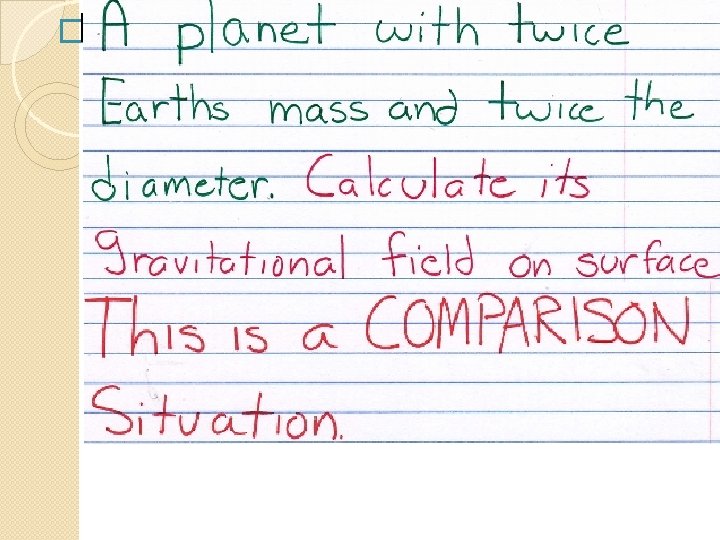 A planet with twice
Earths mass and twice the
diameter. Calculate its
gravitational field on surface
This is a COMPARISON
Situation.